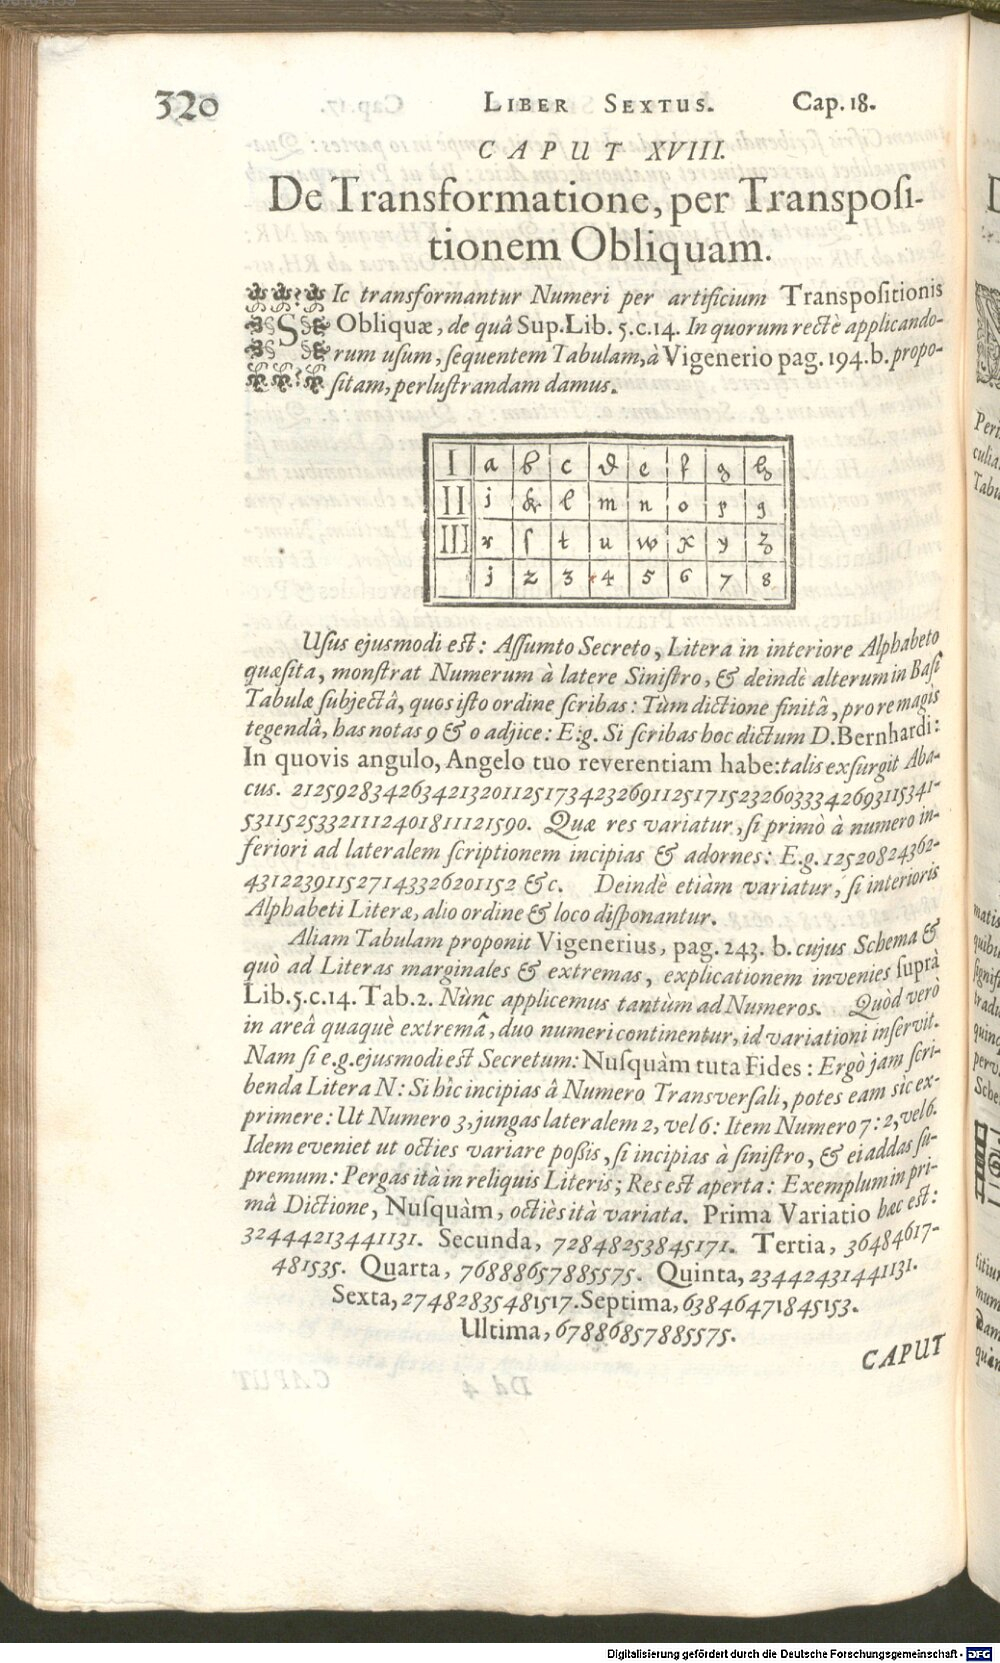 320 LIBER SEXTUS. Cap. 18.
CAPUT XVIII.
De Transformatione, per Transposi-
tionem Obliquam.
SIc transformantur Numeri per artificium Transpositionis
Obliquæ, de quâ Sup. Lib. 5. c. 14. In quorum rectè applicando-
rum usum, sequentem Tabulam, à Vigenerio pag. 194. b. propo-
sitam, perlustrandam damus.
I a b c d e f g h
II i k l m n o p q
III r s t u w x y z
1 2 3 4 5 6 7 8
Usus ejusmodi est: Assumto Secreto, Litera in interiore Alphabeto
quæsita, monstrat Numerum à latere Sinistro, & deindè alterum in Basi
Tabulæ subjectâ, quos isto ordine scribas: Tùm dictione finitâ, pro re magis
tegendâ, has notas 9 & 0 adjice: E.g. Si scribas hoc dictum D. Bernhardi:
In quovis angulo, Angelo tuo reverentiam habe: talis exsurgit Aba-
cus. 2125928342634213201125173423269112517152326033342693115341-
53115253321112401811121590. Quæ res variatur, si primò à numero in-
feriori ad lateralem scriptionem incipias & adornes: E.g. 12520824362-
431223911527143326201152 &c. Deindè etiàm variatur, si interioris
Alphabeti Literæ, alio ordine & loco disponantur.
Aliam Tabulam proponit Vigenerius, pag. 243. b. cujus Schema &
quò ad Literas marginales & extremas, explicationem invenies suprà
Lib. 5. c. 14. Tab. 2. Nùnc applicemus tantùm ad Numeros. Quòd verò
in areâ quaquè extremâ, duo numeri continentur, id variationi inservit.
Nam si e.g. ejusmodi est Secretum: Nusquàm tuta Fides: Ergò jam scri-
benda Litera N: Si hîc incipias â Numero Transversali, potes eam sìc ex-
primere: Ut Numero 3, jungas lateralem 2, vel 6: Item Numero 7: 2, vel 6.
Idem eveniet ut octies variare possis, si incipias à sinistro, & ei addas su-
premum: Pergas ità in reliquis Literis; Res est aperta: Exemplum in pri-
mâ Dictione, Nusquàm, octiès ità variata. Prima Variatio hæc est:
32444213441131. Secunda, 72848253845171. Tertia, 36484617-
481535. Quarta, 76888657885575. Quinta, 23442431441131.
Sexta, 27482835481517. Septima, 63846471845153.
Ultima, 67886857885575.
CAPUT
Digitalisierung gefördert durch die Deutsche Forschungsgemeinschaft - DFG